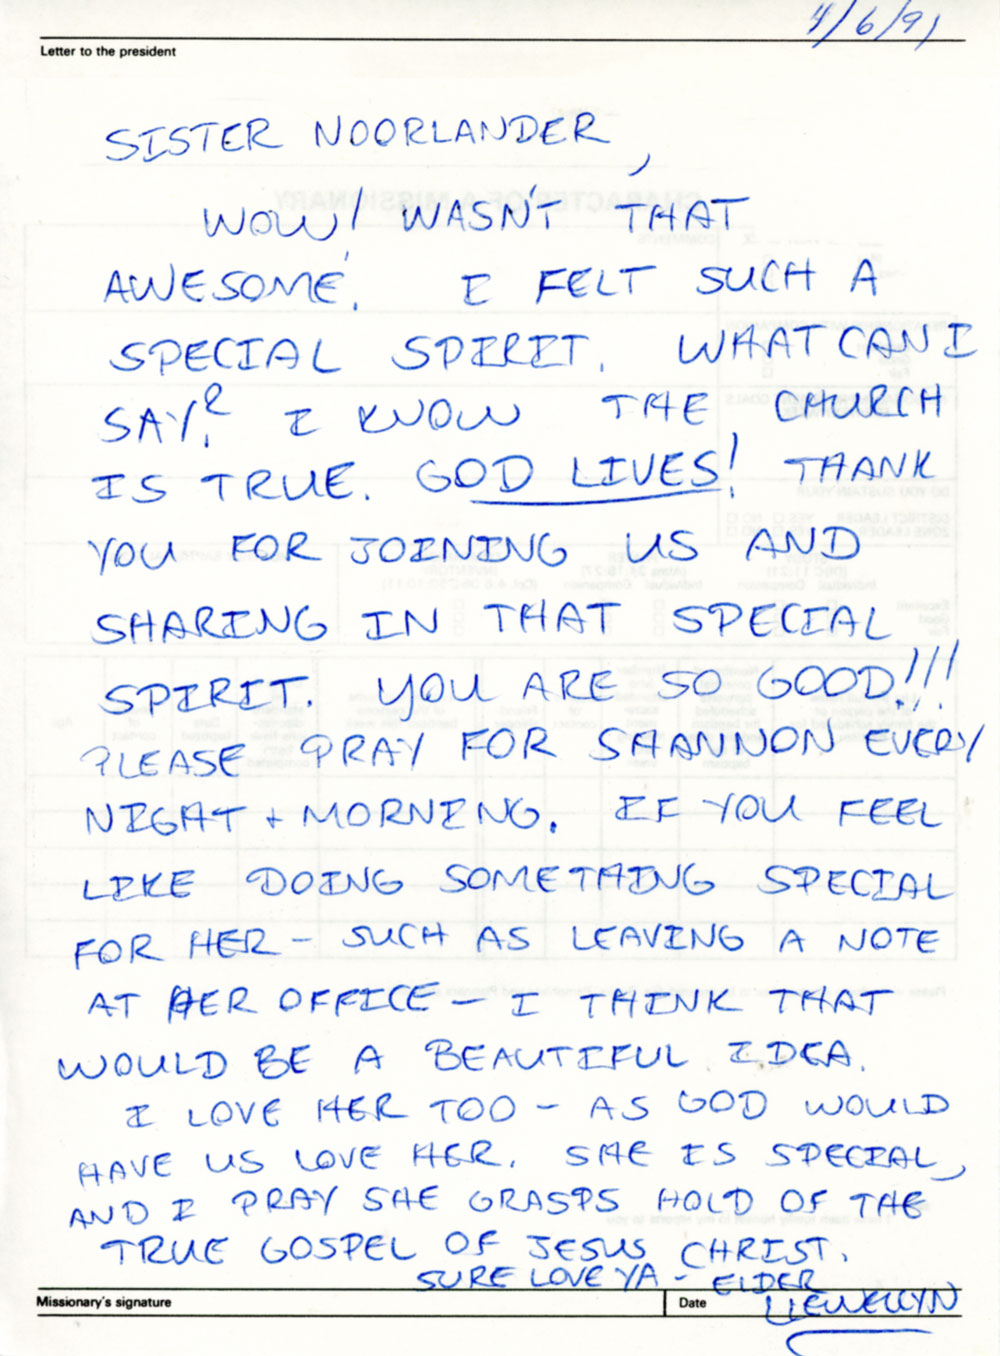 4/6/91
Letter to the president
SISTER NOORLANDER,
WOW! WASN'T THAT
AWESOME! I FELT SUCH A
SPECIAL SPIRIT. WHAT CAN I
SAY? I KNOW THE CHURCH
IS TRUE. GOD LIVES! THANK
YOU FOR JOINING US AND
SHARING IN THAT SPECIAL
SPIRIT. YOU ARE SO GOOD!!!
PLEASE PRAY FOR SHANNON EVERY
NIGHT + MORNING. IF YOU FEEL
LIKE DOING SOMETHING SPECIAL
FOR HER - SUCH AS LEAVING A NOTE
AT HER OFFICE - I THINK THAT
WOULD BE A BEAUTIFUL IDEA.
I LOVE HER TOO - AS GOD WOULD
HAVE US LOVE HER. SHE IS SPECIAL,
AND I PRAY SHE GRASPS HOLD OF THE
TRUE GOSPEL OF JESUS CHRIST.
SURE LOVE YA - ELDER
LLEWELLYN
Missionary's signature Date